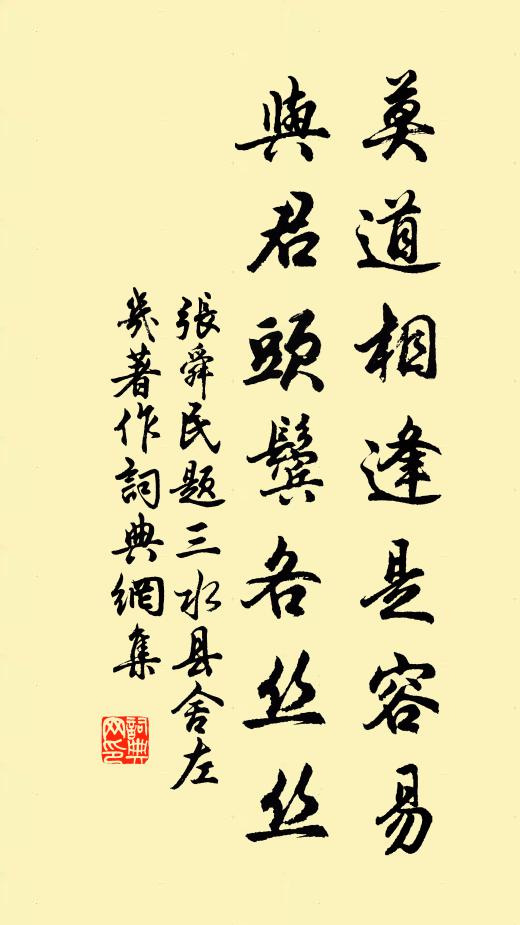 莫道相逢是容易
與君頭鬢各丝丝
張舜民题三水县舍左
幾著作詞典網集
詞典
网印